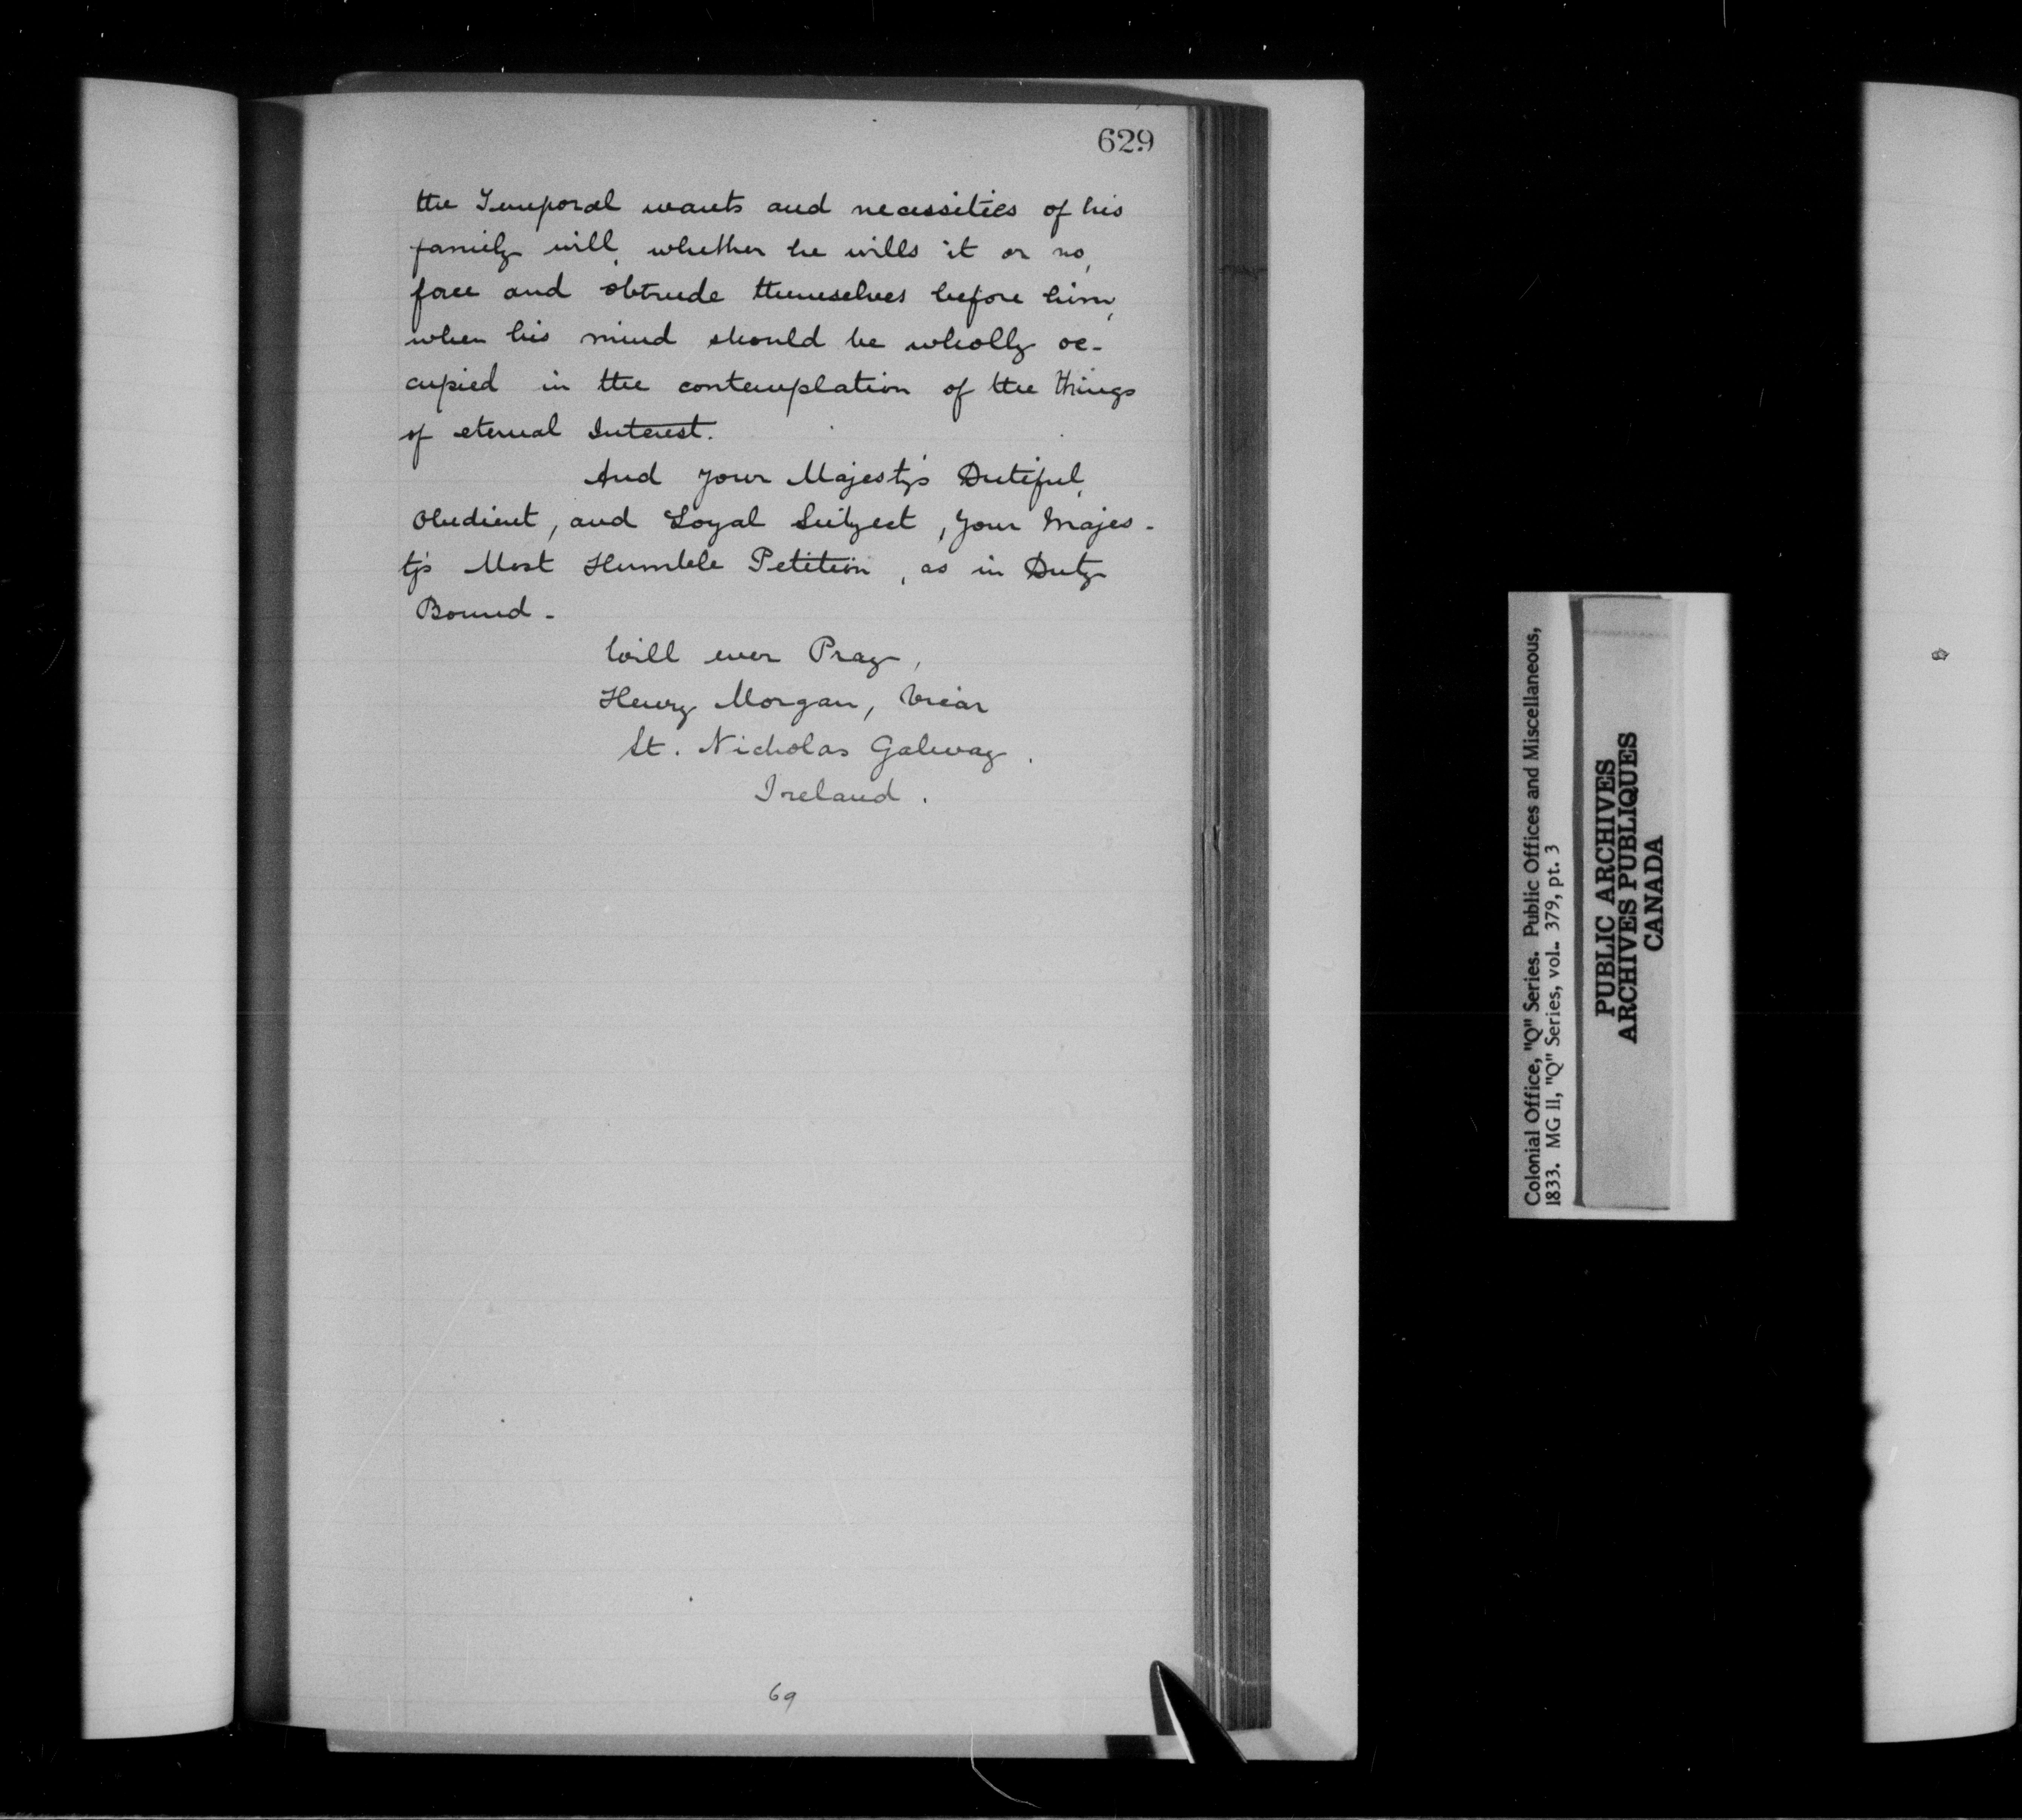 629
the Temporal wants and necessities of his
family will, whether he wills it or no,
face and obtrude themselves before him,
when his mind should be wholly oc-
cupied in the contemplation of the things
of eternal Interest.
And your Majesty's Dutiful,
Obedient, and Loyal Subject, your Majes-
ty's Most Humble Petition, as in Duty
Bound-
Will ever Pray,
Henry Morgan, Vicar
St. Nicholas Galway.
Ireland.
69
Colonial Office, "Q" Series. Public Offices and Miscellaneous,
1833. MG 11, "Q" Series, vol. 379, pt. 3
PUBLIC ARCHIVES
ARCHIVES PUBLIQUES
CANADA